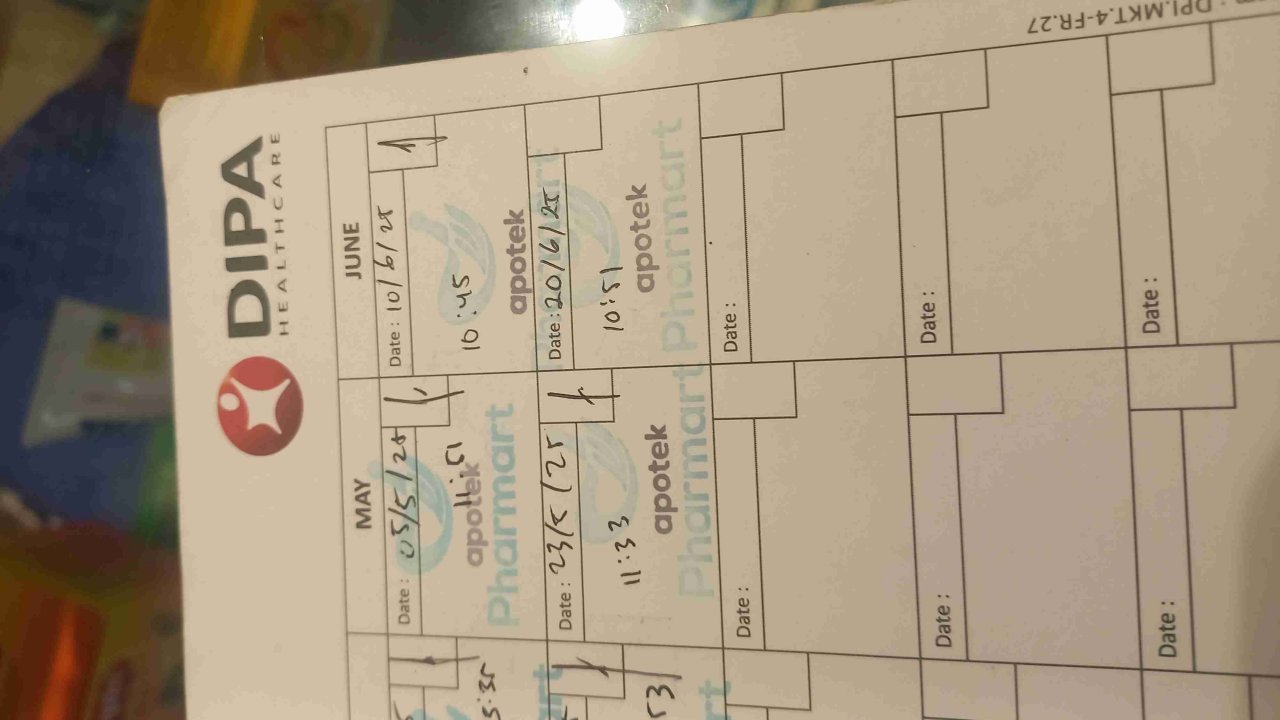 DIPA
HEALTHCARE
MAY
JUNE
Date : 05/5/25
11:51
apotek
Pharmart
Date : 10/6/25
10:45
apotek
Date : 23/5/25
11:33
apotek
Pharmart
Date : 20/6/25
10:51
apotek
Pharmart
Date :
Date :
Date :
Date :
Date :
Date :
: DPI.MKT.4-FR.27